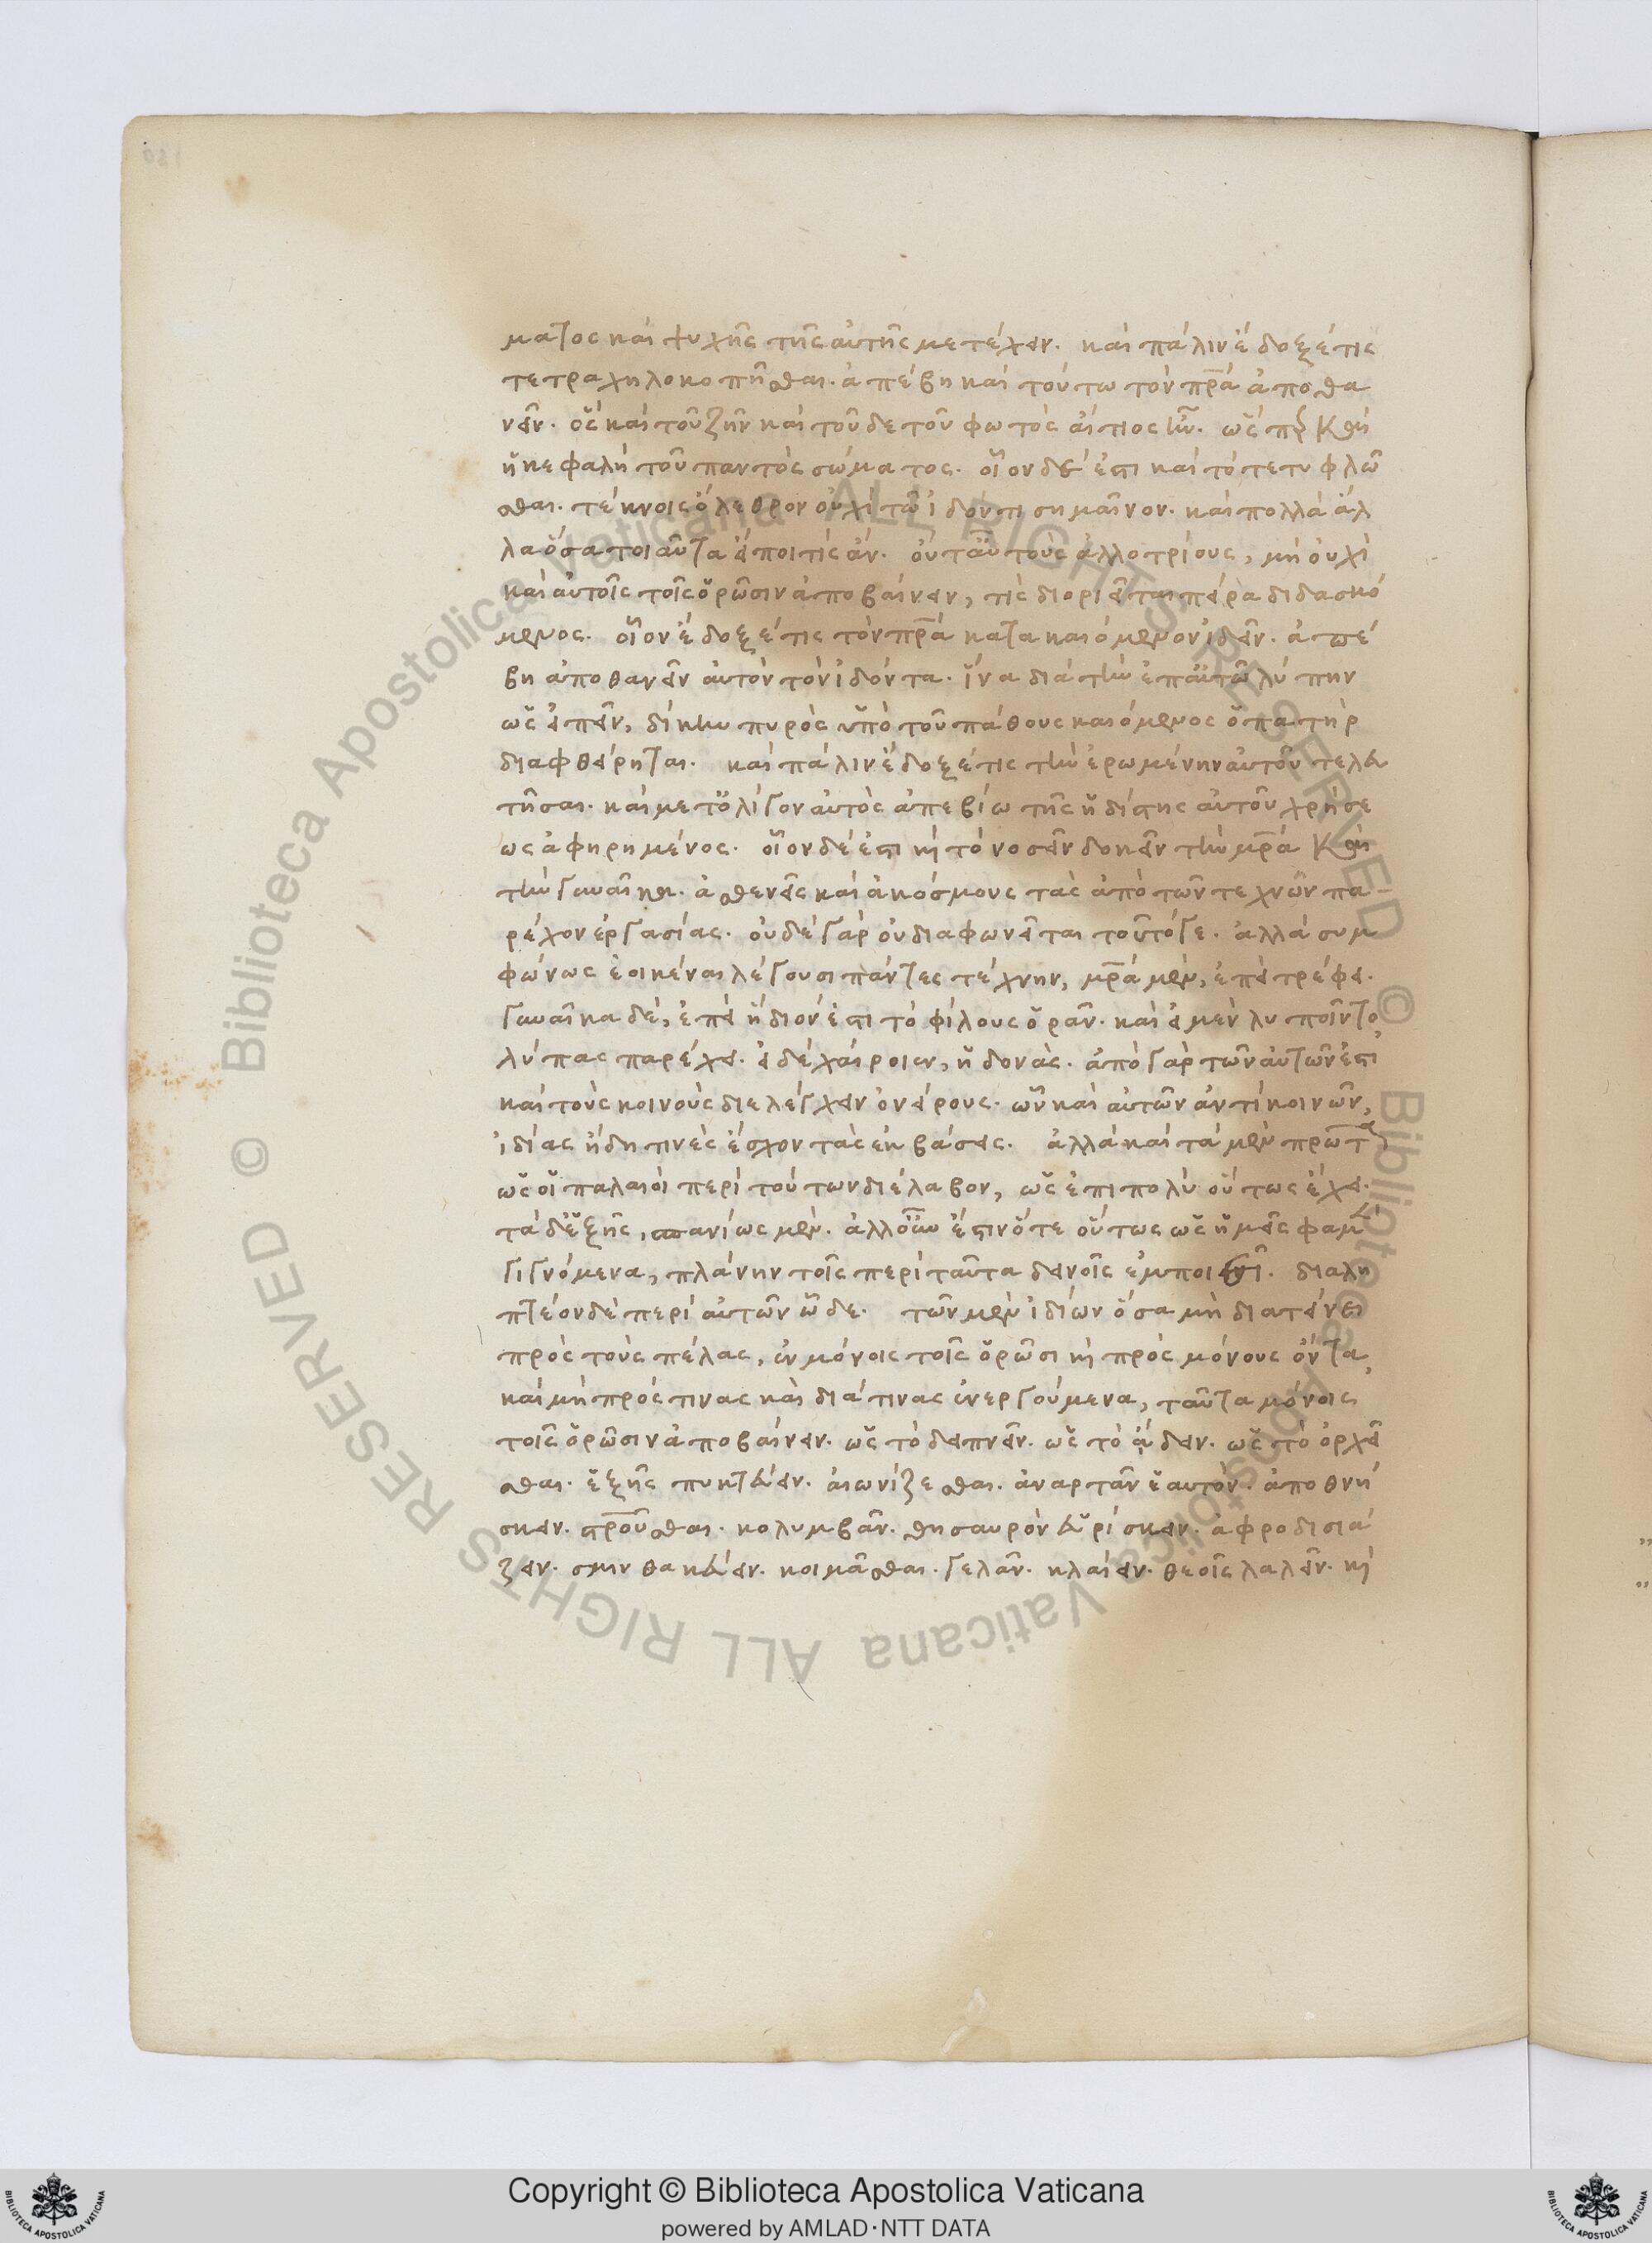 ματος καὶ ψυχῆς τῆς αὐτῆς μετέχειν. καὶ πάλιν ἔδοξέ τις
τετραχηλοκοπῆσθαι. ἀπέβη καὶ τούτω τὸν πρ̅α ἀποθα
νεῖν. ὃς καὶ τοῦ ζῆν καὶ τοῦδε τοῦ φωτὸς αἴτιος ἦν. ὥσπερ καὶ
ἡ κεφαλὴ τοῦ παντὸς σώματος. οἷον δέ ἐστι καὶ τὸ τετυφλῶ
σθαι. τέκνοις ὄλεθρον οὐχὶ τῶ ἰδόντι σημαῖνον. καὶ πολλὰ ἄλ
λα ὅσα τοιαῦτα εἴποι τὶς ἄν. οὐ ταῦτ τοὺς ἀλλοτρίους, μὴ οὐχὶ
καὶ αὐτοῖς τοῖς ὁρῶσιν ἀποβαίνειν, τίς διοριεῖται πεῖρα διδασκό
μενος. οἷον ἔδοξέ τις τὸν πρ̅α κατακαιόμενον ἰδεῖν. ἀπέ
βη ἀποθανεῖν αὐτὸν τὸν ἰδόντα. ἵνα διὰ τὴν ἐπ' αὐτῶ λύπην
ὡς εἰπεῖν, δίκην πυρὸς ὑπὸ τοῦ πάθους καιόμενος ὁ πατὴρ
διαφθείρηται. καὶ πάλιν ἔδοξέ τις τὴν ἐρωμένην αὐτοῦ τελευ
τῆσαι. καὶ μετ' ὀλίγον αὐτὸς ἀπεβίω τῆς ἡδίστης αὐτοῦ χρήσε
ως ἀφηρημένος. οἷον δέ ἐστι καὶ τὸ νοσεῖν δοκεῖν τὴν μρ̅α καὶ
τὴν γυναῖκα. ἀσθενεῖς καὶ ἀκόσμους τὰς ἀπὸ τῶν τεχνῶν πα
ρέχον ἐργασίας. οὐδὲ γὰρ οὐ διαφωνεῖται τοῦτό γε. ἀλλὰ συμ
φώνως ἐοικέναι λέγουσι πάντες τέχνην, μρ̅α μὲν, ἐπεὶ τρέφει.
γυναῖκα δὲ, ἐπεὶ ἴδιον ἐστι τὸ φίλους ὁρᾶν. καὶ εἰ μὲν λυποῖντο
λύπας παρέχει. εἰ δὲ χαίροιεν, ἡδονάς. ἀπὸ γὰρ τῶν αὐτῶν ἐστι
καὶ τοὺς κοινοὺς διελέγχειν ὀνείρους. ὧν καὶ αὐτῶν ἀντὶ κοινῶν,
ἰδίας ἤδη τινὲς ἔσχον τὰς ἐκβάσεις. ἀλλὰ καὶ τὰ μὲν πρῶτα
ὡς οἱ παλαιοὶ περὶ τούτων διέλαβον, ὡς ἐπιπολὺ οὕτως ἔχει.
τὰ δ' ἑξῆς, σπανίως μὲν. ἀλλ' οὖν ἔστιν ὅτε οὕτως ὡς ἡμεῖς φαμεν
γιγνόμενα, πλάνην τοῖς περὶ ταῦτα δεινοῖς ἐμποιεῖ. διαλη
πτέον δὲ περὶ αὐτῶν ὧδε. τῶν μὲν ἰδίων ὅσα μὴ διατείνει
πρὸς τοὺς πέλας, ἐν μόνοις τοῖς ὁρῶσι καὶ πρὸς μόνους ὄντα
καὶ μὴ πρός τινας καὶ διά τινας ἐνεργούμενα, ταῦτα μόνοις
τοῖς ὁρῶσιν ἀποβαίνειν. ὡς τὸ δειπνεῖν. ὡς τὸ ᾄδειν. ὡς τὸ ὀρχεῖ
σθαι. ἑξῆς πυκτεύειν. ἀγωνίζεσθαι. ἀναρτᾶν ἑαυτόν. ἀποθνή
σκειν. στροῦσθαι. κολυμβᾶν. θησαυρὸν εὑρίσκειν. ἀφροδισιά
ζειν. σμινθακεύειν. κοιμᾶσθαι. γελᾶν. κλαίειν. θεοῖς λαλεῖν. καὶ